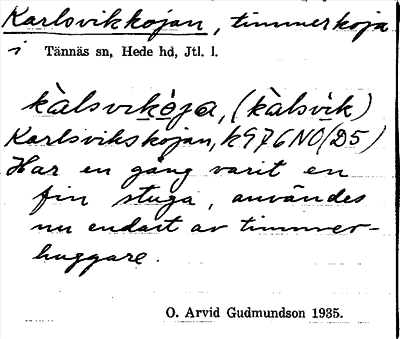 Karlsvikkojan, timmerkoja
i Tännäs sn, Hede hd, Jtl. l.
kàlsvikòja, (kàlsvik)
Karlsvikskojan, k976NO(D5)
Har en gång varit en
fin stuga, användes
nu endast av timmer-
huggare.
O. Arvid Gudmundson 1935.